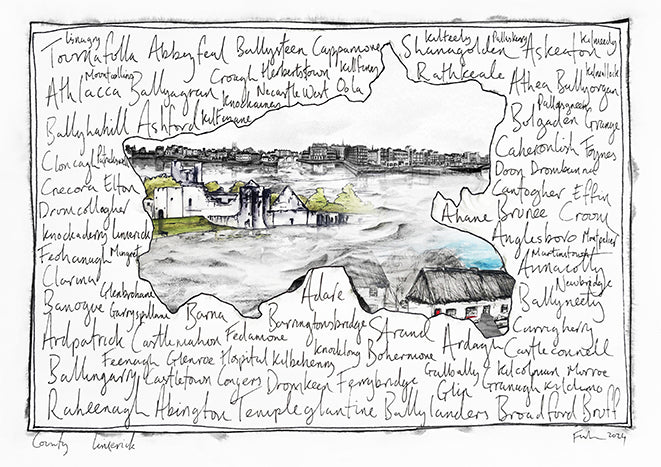 Lisnagry Kilteely Pallaskenry Kilmeedy
Tournafulla Abbeyfeal Ballysteen Cappamore Shanagolden Askeaton
Mountcollins Croagh Herbertstown Kilfinny Rathkeale Kilmallock
Athlacca Ballyagran Knockainey Newcastle West Oola Athea Ballyorgan
Ballyhahill Ashford Kilfinane Pallasgreen
Bulgaden Grange
Cloncagh Patrickswell Caherconlish Foynes
Crecora Elton Doon Dromkeen
Drumcollogher Cantogher Effin
Knockaderry Limerick Ahane Bruree Croom
Feohanagh Mungret Anglesboro Montpelier
Clarina Martinstown
Annacotty
Glenbrohane Newbridge
Banogue Garryspillane Barna Adare Ballyneety
Ardpatrick Castlemahon Fedamore Barringtonsbridge Strand Ardagh Curragherry
Feenagh Glenroe Hospital Kilbehenny Knocklong Bohermore Castleconnell
Ballingarry Castletown Conyers Dromkeen Ferrybridge Galbally Kilcolman Murroe
Glin Granagh Kildimo
Raheenagh Abington Templeglantine Ballylanders Broadford Bruff
County Limerick 2024